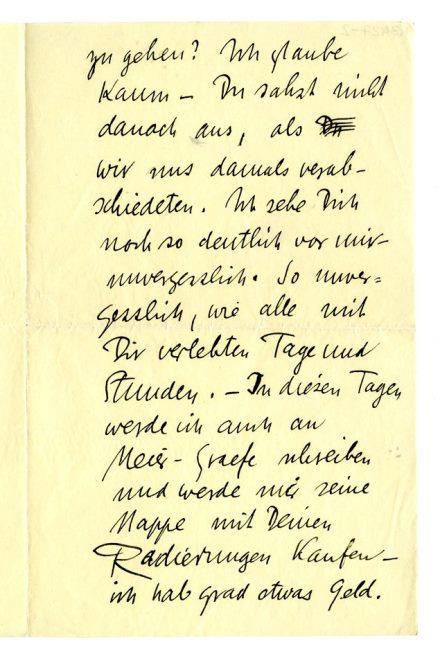 zu gehen? Ich glaube
kaum – Du sahst nicht
danach aus, als
wir uns damals verab-
schiedeten. Ich sehe Dich
noch so deutlich vor mir –
unvergesslich. So unver=
gesslich, wie alle mit
Dir verlebten Tage und
Stunden. – In diesen Tagen
werde ich auch an
Meier-Graefe schreiben
und werde mir seine
Mappe mit Deinen
Radierungen kaufen –
ich hab grad etwas Geld.